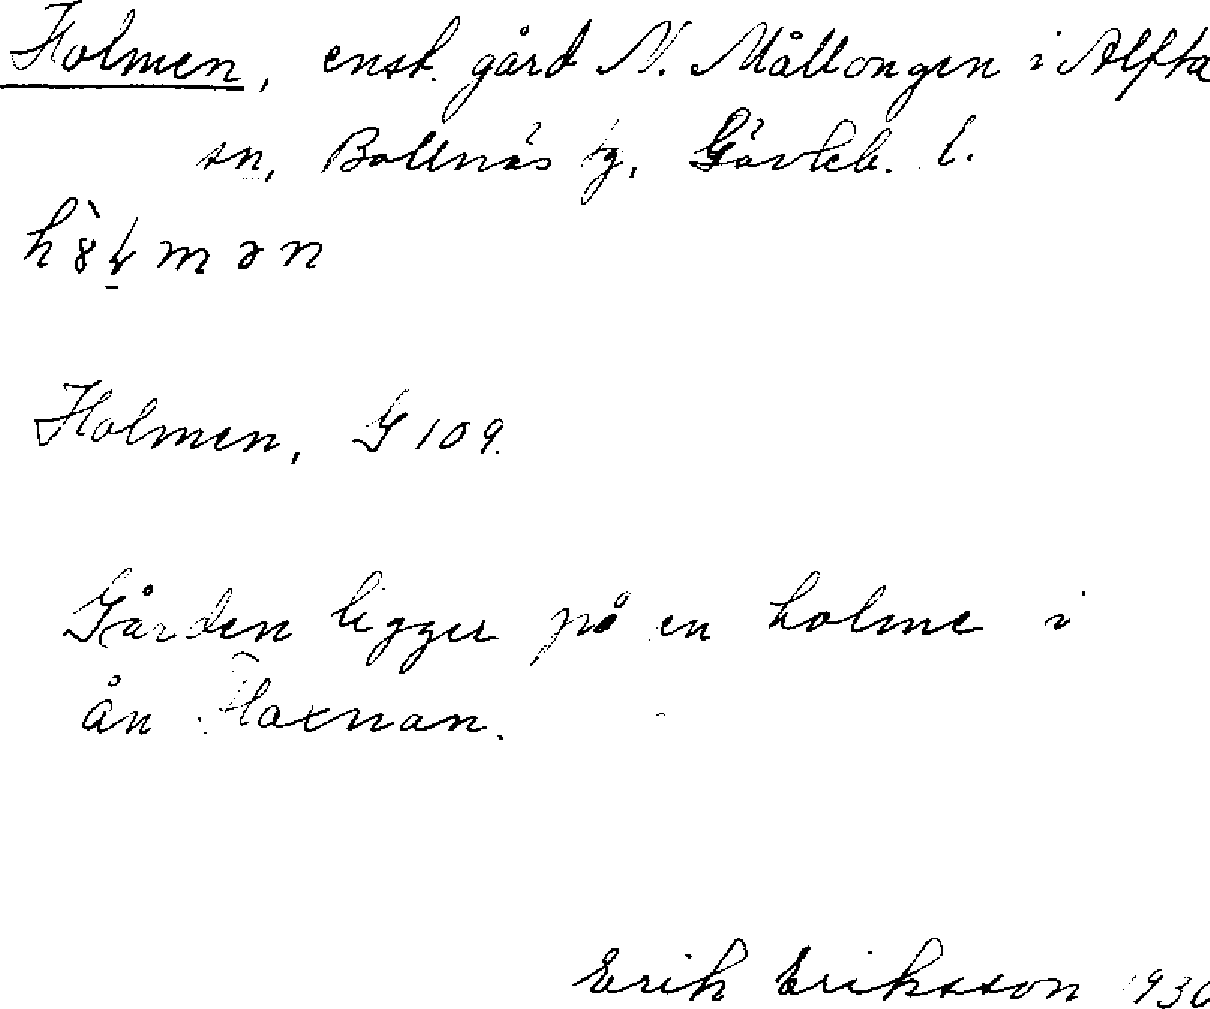 Holmen, ensk. gård N. Mållongen i Alfta
sn, Bollnäs tg, Gävleb. l.
Holmen, G 109.
Gården ligger på en holme i
ån Voxnan.
Erik Eriksson 1930